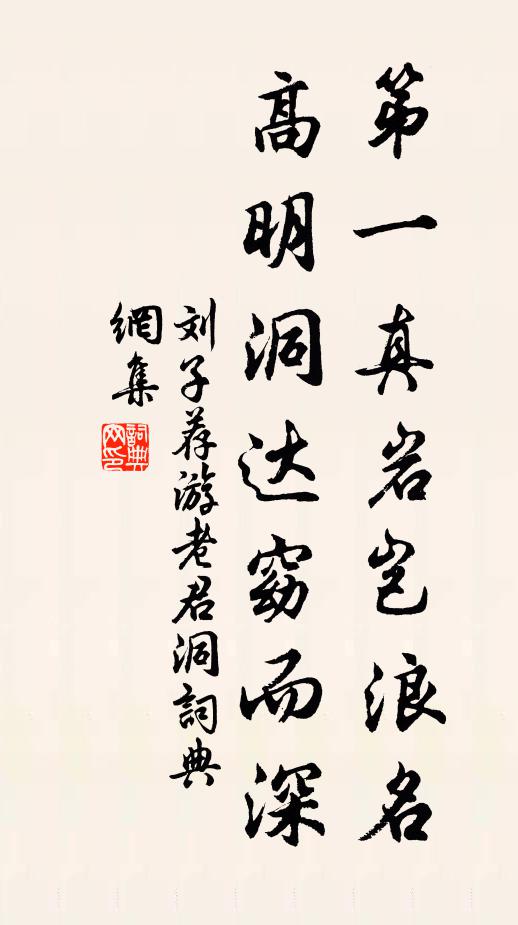 第一真岩岂浪名
高明洞达窈而深
刘子荐游老君洞詞典
網集
詞典
网印